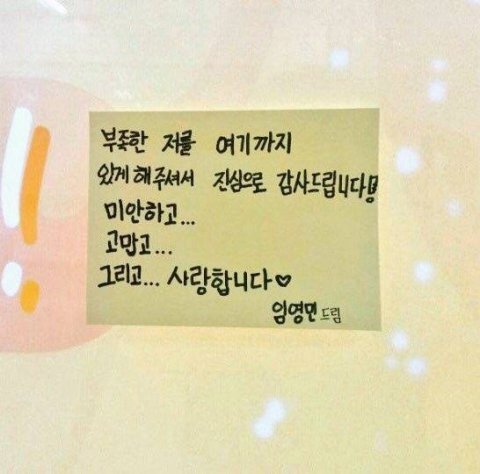 부족한 저를 여기까지
있게 해주셔서 진심으로 감사드립니다!!
미안하고...
고맙고...
그리고... 사랑합니다♡
임영민 드림